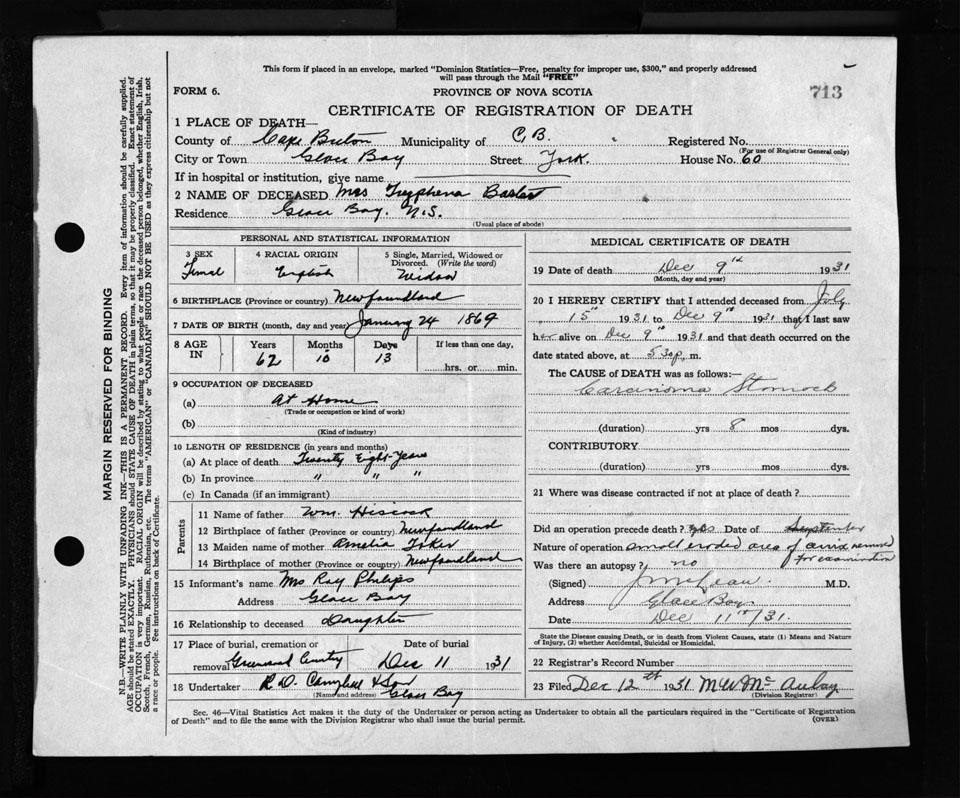 This form if placed in an envelope, marked "Dominion Statistics—Free, penalty for improper use, $300," and properly addressed
will pass through the Mail "FREE"
713
FORM 6. PROVINCE OF NOVA SCOTIA
CERTIFICATE OF REGISTRATION OF DEATH
1 PLACE OF DEATH—
County of Cape Breton Municipality of C.B. Registered No.
(For use of Registrar General only)
City or Town Glace Bay Street York. House No. 60
If in hospital or institution, give name
2 NAME OF DECEASED Mrs Tryphena
Residence Glace Bay. N.S.
(Usual place of abode)
PERSONAL AND STATISTICAL INFORMATION
3 SEX 4 RACIAL ORIGIN 5 Single, Married, Widowed or
Divorced. (Write the word)
Femal English Widow
6 BIRTHPLACE (Province or country) Newfoundland
7 DATE OF BIRTH (month, day and year) January 24 1869
8 AGE IN Years Months Days If less than one day,
62 10 13 hrs. or min.
9 OCCUPATION OF DECEASED
(a) At Home
(Trade or occupation or kind of work)
(b)
(Kind of industry)
10 LENGTH OF RESIDENCE (in years and months)
(a) At place of death Twenty Eight Years
(b) In province " " "
(c) In Canada (if an immigrant)
Parents
11 Name of father Wm. Hiscock
12 Birthplace of father (Province or country) Newfoundland
13 Maiden name of mother Amelia
14 Birthplace of mother (Province or country) Newfoundland
15 Informant's name Mrs Ray Philips
Address Glace Bay
16 Relationship to deceased Daughter
17 Place of burial, cremation or Date of burial
removal Greenwood Dec 11 1931
18 Undertaker R.D. Campbell & Son
(Name and address) Glace Bay
MEDICAL CERTIFICATE OF DEATH
19 Date of death Dec 9th 1931
(Month, day and year)
20 I HEREBY CERTIFY that I attended deceased from July
15th 1931 to Dec 9th 1931 that I last saw
her alive on Dec 9th 1931 and that death occurred on the
date stated above, at 5 30 p. m.
The CAUSE of DEATH was as follows:—
Carcinoma Stomach
(duration) yrs 8 mos dys.
CONTRIBUTORY
(duration) yrs mos dys.
21 Where was disease contracted if not at place of death?
Did an operation precede death? yes Date of September
Nature of operation small eroded area of removed
for examination
Was there an autopsy? no
(Signed) J McLean. M.D.
Address Glace Bay.
Date Dec 11th/31.
State the Disease causing Death, or in death from Violent Causes, state (1) Means and Nature
of Injury, (2) whether Accidental, Suicidal or Homicidal.
22 Registrar's Record Number
23 Filed Dec 12th 1931 M W McAulay
(Division Registrar)
Sec. 46—Vital Statistics Act makes it the duty of the Undertaker or person acting as Undertaker to obtain all the particulars required in the "Certificate of Registration
of Death" and to file the same with the Division Registrar who shall issue the burial permit. (OVER)
MARGIN RESERVED FOR BINDING
N.B.—WRITE PLAINLY WITH UNFADING INK—THIS IS A PERMANENT RECORD. Every item of information should be carefully supplied.
AGE should be stated EXACTLY. PHYSICIANS should STATE CAUSE OF DEATH in plain terms, so that it may be properly classified. Exact statement of
OCCUPATION is very important. RACIAL ORIGIN will be described by stating to what people or race the deceased person belonged, whether English, Irish,
Scotch, French, German, Russian, Ruthenian, etc. The terms "AMERICAN" or "CANADIAN" SHOULD NOT BE USED as they express citizenship but not
a race or people. See instructions on back of Certificate.